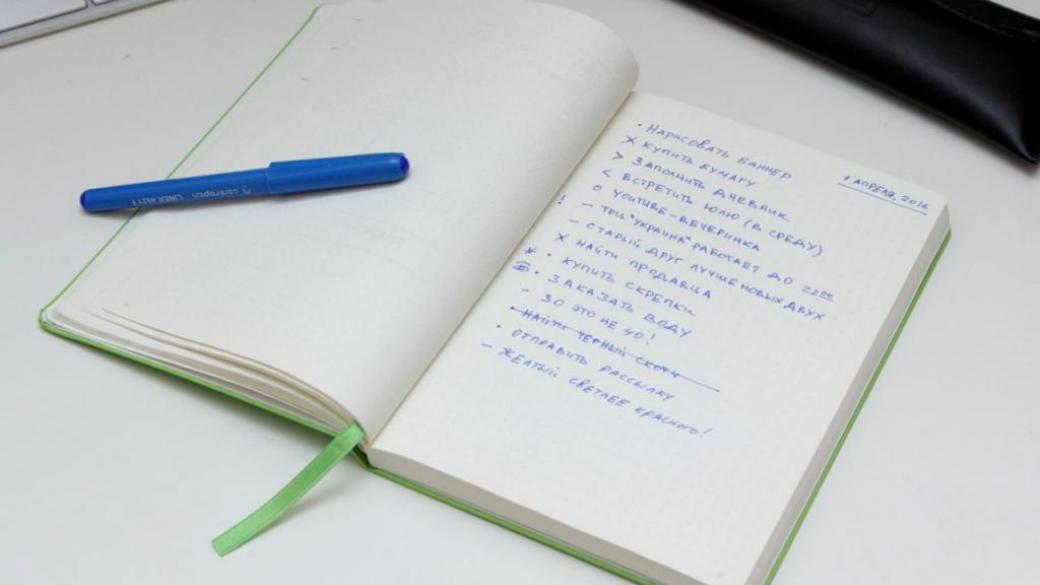 1 АПРЕЛЯ, 2016
· НАРИСОВАТЬ БАННЕР
X КУПИТЬ БУМАГУ
> ЗАПОЛНИТЬ ДНЕВНИК
< ВСТРЕТИТЬ ЮЛЮ (В СРЕДУ)
O YOUTUBE-ВЕЧЕРИНКА
! – ТРЦ "УКРАИНА" РАБОТАЕТ ДО 22:00
– СТАРЫЙ ДРУГ ЛУЧШЕ НОВЫХ ДВУХ
X НАЙТИ ПРОДАВЦА
* · КУПИТЬ СКРЕПКИ
· ЗАКАЗАТЬ ВОДУ
– 30 ЭТО НЕ 40!
· НАЙТИ ЧЕРНЫЙ СКОТЧ
· ОТПРАВИТЬ РАССЫЛКУ
– ЖЕЛТЫЙ СВЕТЛЕЕ КРАСНОГО!
centropen LINER 4621 F